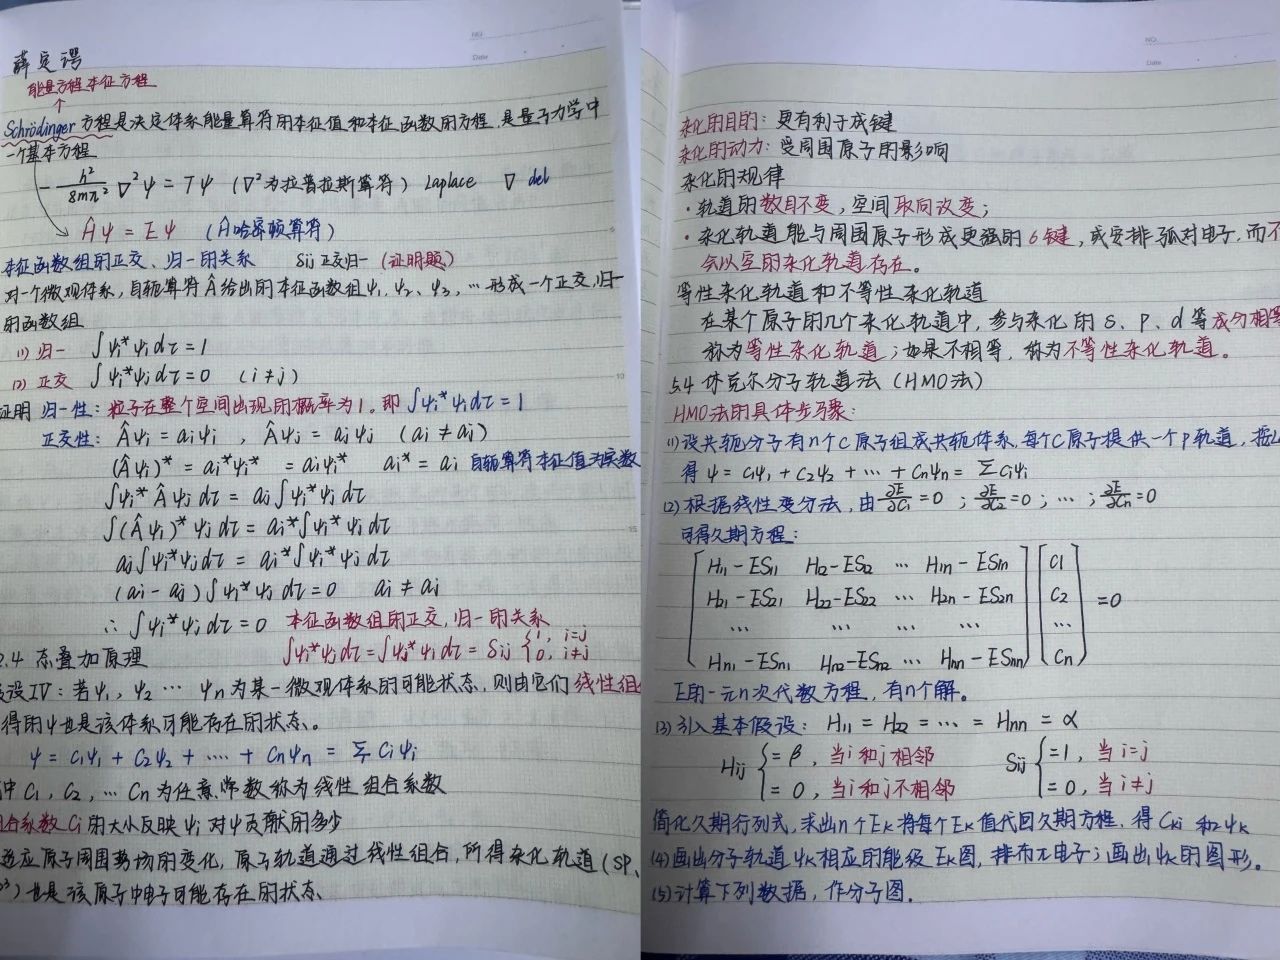 NO.
Date
薛定谔
能量方程 本征方程
↑
Schrödinger 方程是决定体系能量算符的本征值和本征函数的方程,是量子力学中
一个基本方程
-h²/8mπ² ∇²ψ = Tψ (∇²为拉普拉斯算符) Laplace ∇ del
Ĥψ = Eψ (Ĥ哈密顿算符)
本征函数组的正交、归一的关系 Sij 正交归一 (证明题)
对一个微观体系,自轭算符Â给出的本征函数组ψ₁, ψ₂、ψ₃, … 形成一个正交,归一
的函数组
(1) 归一 ∫ψi*ψi dτ = 1
(2) 正交 ∫ψi*ψj dτ = 0 (i ≠ j)
证明 归一性: 粒子在整个空间出现的概率为1。即 ∫ψi*ψi dτ = 1
正交性: Âψi = aiψi , Âψj = ajψj (ai ≠ aj)
(Âψi)* = ai*ψi* = aiψi* ai* = ai 自轭算符本征值为实数
∫ψi*Âψj dτ = aj∫ψi*ψj dτ
∫(Âψi)*ψj dτ = ai*∫ψi*ψj dτ
aj∫ψi*ψj dτ = ai*∫ψi*ψj dτ
(ai - aj)∫ψi*ψj dτ = 0 ai ≠ aj
∴ ∫ψi*ψj dτ = 0 本征函数组的正交,归一的关系
∫ψi*ψj dτ = ∫ψj*ψi dτ = δij {1, i=j
0, i≠j
2.4 态叠加原理
设IV: 若ψ₁, ψ₂ … ψn 为某一微观体系的可能状态, 则由它们 线性组
得的ψ也是该体系可能存在的状态。
ψ = c₁ψ₁ + c₂ψ₂ + …… + cnψn = Σ ciψi
中 c₁, c₂, … cn 为任意常数 称为线性组合系数
合系数 ci 的大小反映 ψi 对ψ贡献的多少
适应原子周围势场的变化, 原子轨道通过线性组合, 所得杂化轨道(sp、
p³) 也是该原子中电子可能存在的状态
NO.
Date
杂化的目的: 更有利于成键
杂化的动力: 受周围原子的影响
杂化的规律
· 轨道的数目不变, 空间取向改变;
· 杂化轨道能与周围原子形成更强的σ键, 或安排孤对电子, 而不
会以空的杂化轨道存在。
等性杂化轨道和不等性杂化轨道
在某个原子的几个杂化轨道中, 参与杂化的 s、p、d 等成分相等
称为等性杂化轨道; 如果不相等, 称为不等性杂化轨道。
5.4 休克尔分子轨道法 (HMO法)
HMO法的具体步骤:
(1) 设共轭分子有n个C原子组成共轭体系, 每个C原子提供一个p轨道, 按
得 ψ = c₁ψ₁ + c₂ψ₂ + … + cnψn = Σciψi
(2) 根据线性变分法, 由 ∂E/∂c₁ = 0 ; ∂E/∂c₂ = 0 ; … ; ∂E/∂cn = 0
可得久期方程:
[H₁₁-ES₁₁ H₁₂-ES₁₂ … H₁n-ES₁n] [c₁]
[H₂₁-ES₂₁ H₂₂-ES₂₂ … H₂n-ES₂n] [c₂] = 0
[… … … …] […]
[Hn₁-ESn₁ Hn₂-ESn₂ … Hnn-ESnn] [cn]
E的一元n次代数方程, 有n个解。
(3) 引入基本假设: H₁₁ = H₂₂ = … = Hnn = α
Hij {= β, 当i和j相邻 Sij {= 1, 当i=j
= 0, 当i和j不相邻 = 0, 当i≠j
简化久期行列式, 求出n个Ek将每个Ek值代回久期方程, 得Cki 和ψk
(4) 画出分子轨道ψk相应的能级Ek图, 排布π电子; 画出ψk的图形。
(5) 计算下列数据, 作分子图。